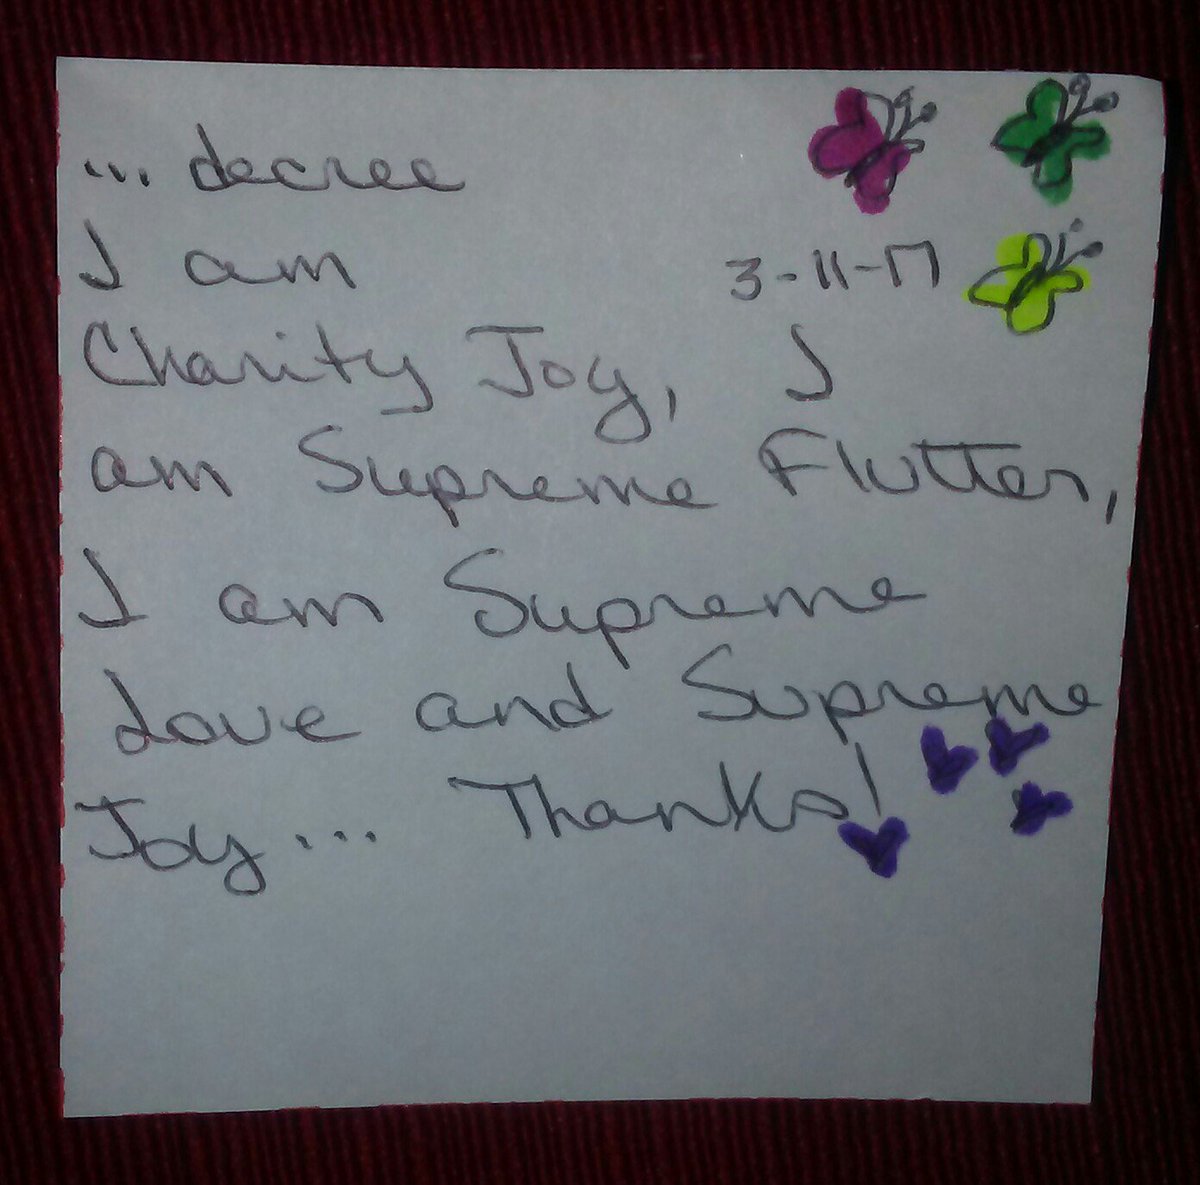 ... decree
I am
3-11-17
Charity Joy, I
am Supreme Flutter,
I am Supreme
Love and Supreme
Joy... Thanks!